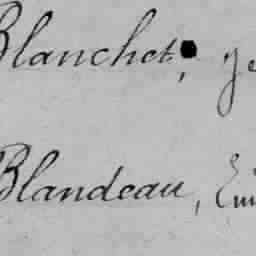 Blanchet, ge
Blandeau, Em